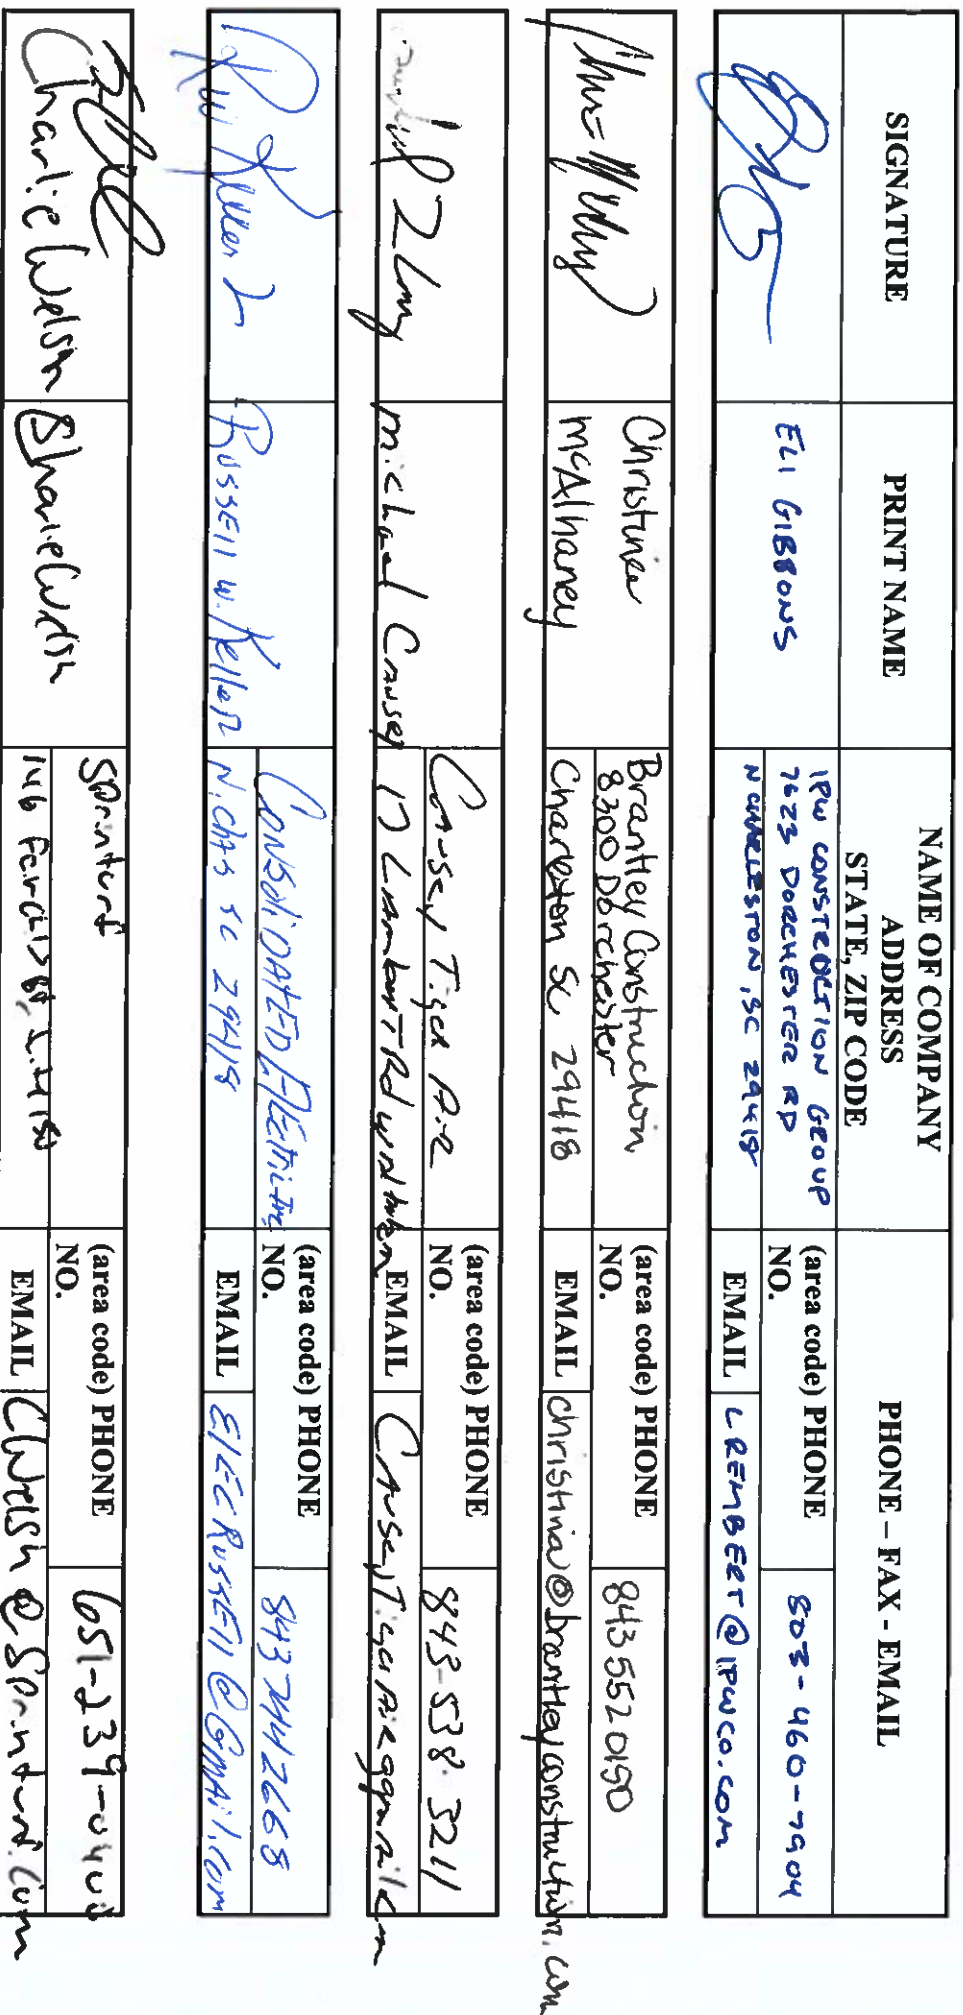 SIGNATURE
PRINT NAME
NAME OF COMPANY
ADDRESS
STATE, ZIP CODE
PHONE – FAX - EMAIL
ELI GIBBONS
IPW CONSTRUCTION GROUP
7623 DORCHESTER RD
N CHARLESTON, SC 29418
(area code) PHONE
NO.
803-460-7904
EMAIL
LREMBERT@IPWCO.COM
Christina
McAlhaney
Brantley Construction
8300 Dorchester
Charleston SC 29418
(area code) PHONE
NO.
843 552 0150
EMAIL
christina@brantleyconstruction.com
michael Causey
Causey Tiger Air
17 Lambert Rd
(area code) PHONE
NO.
843-538-3211
EMAIL
Russell W. Keller
Consolidated
N. Chas SC 29418
(area code) PHONE
NO.
EMAIL
ElecRussEll@GMAil.com
Charlie Welsh
Sprinturf
146
(area code) PHONE
NO.
651-239-
EMAIL
CWelsh@Sprinturf.com